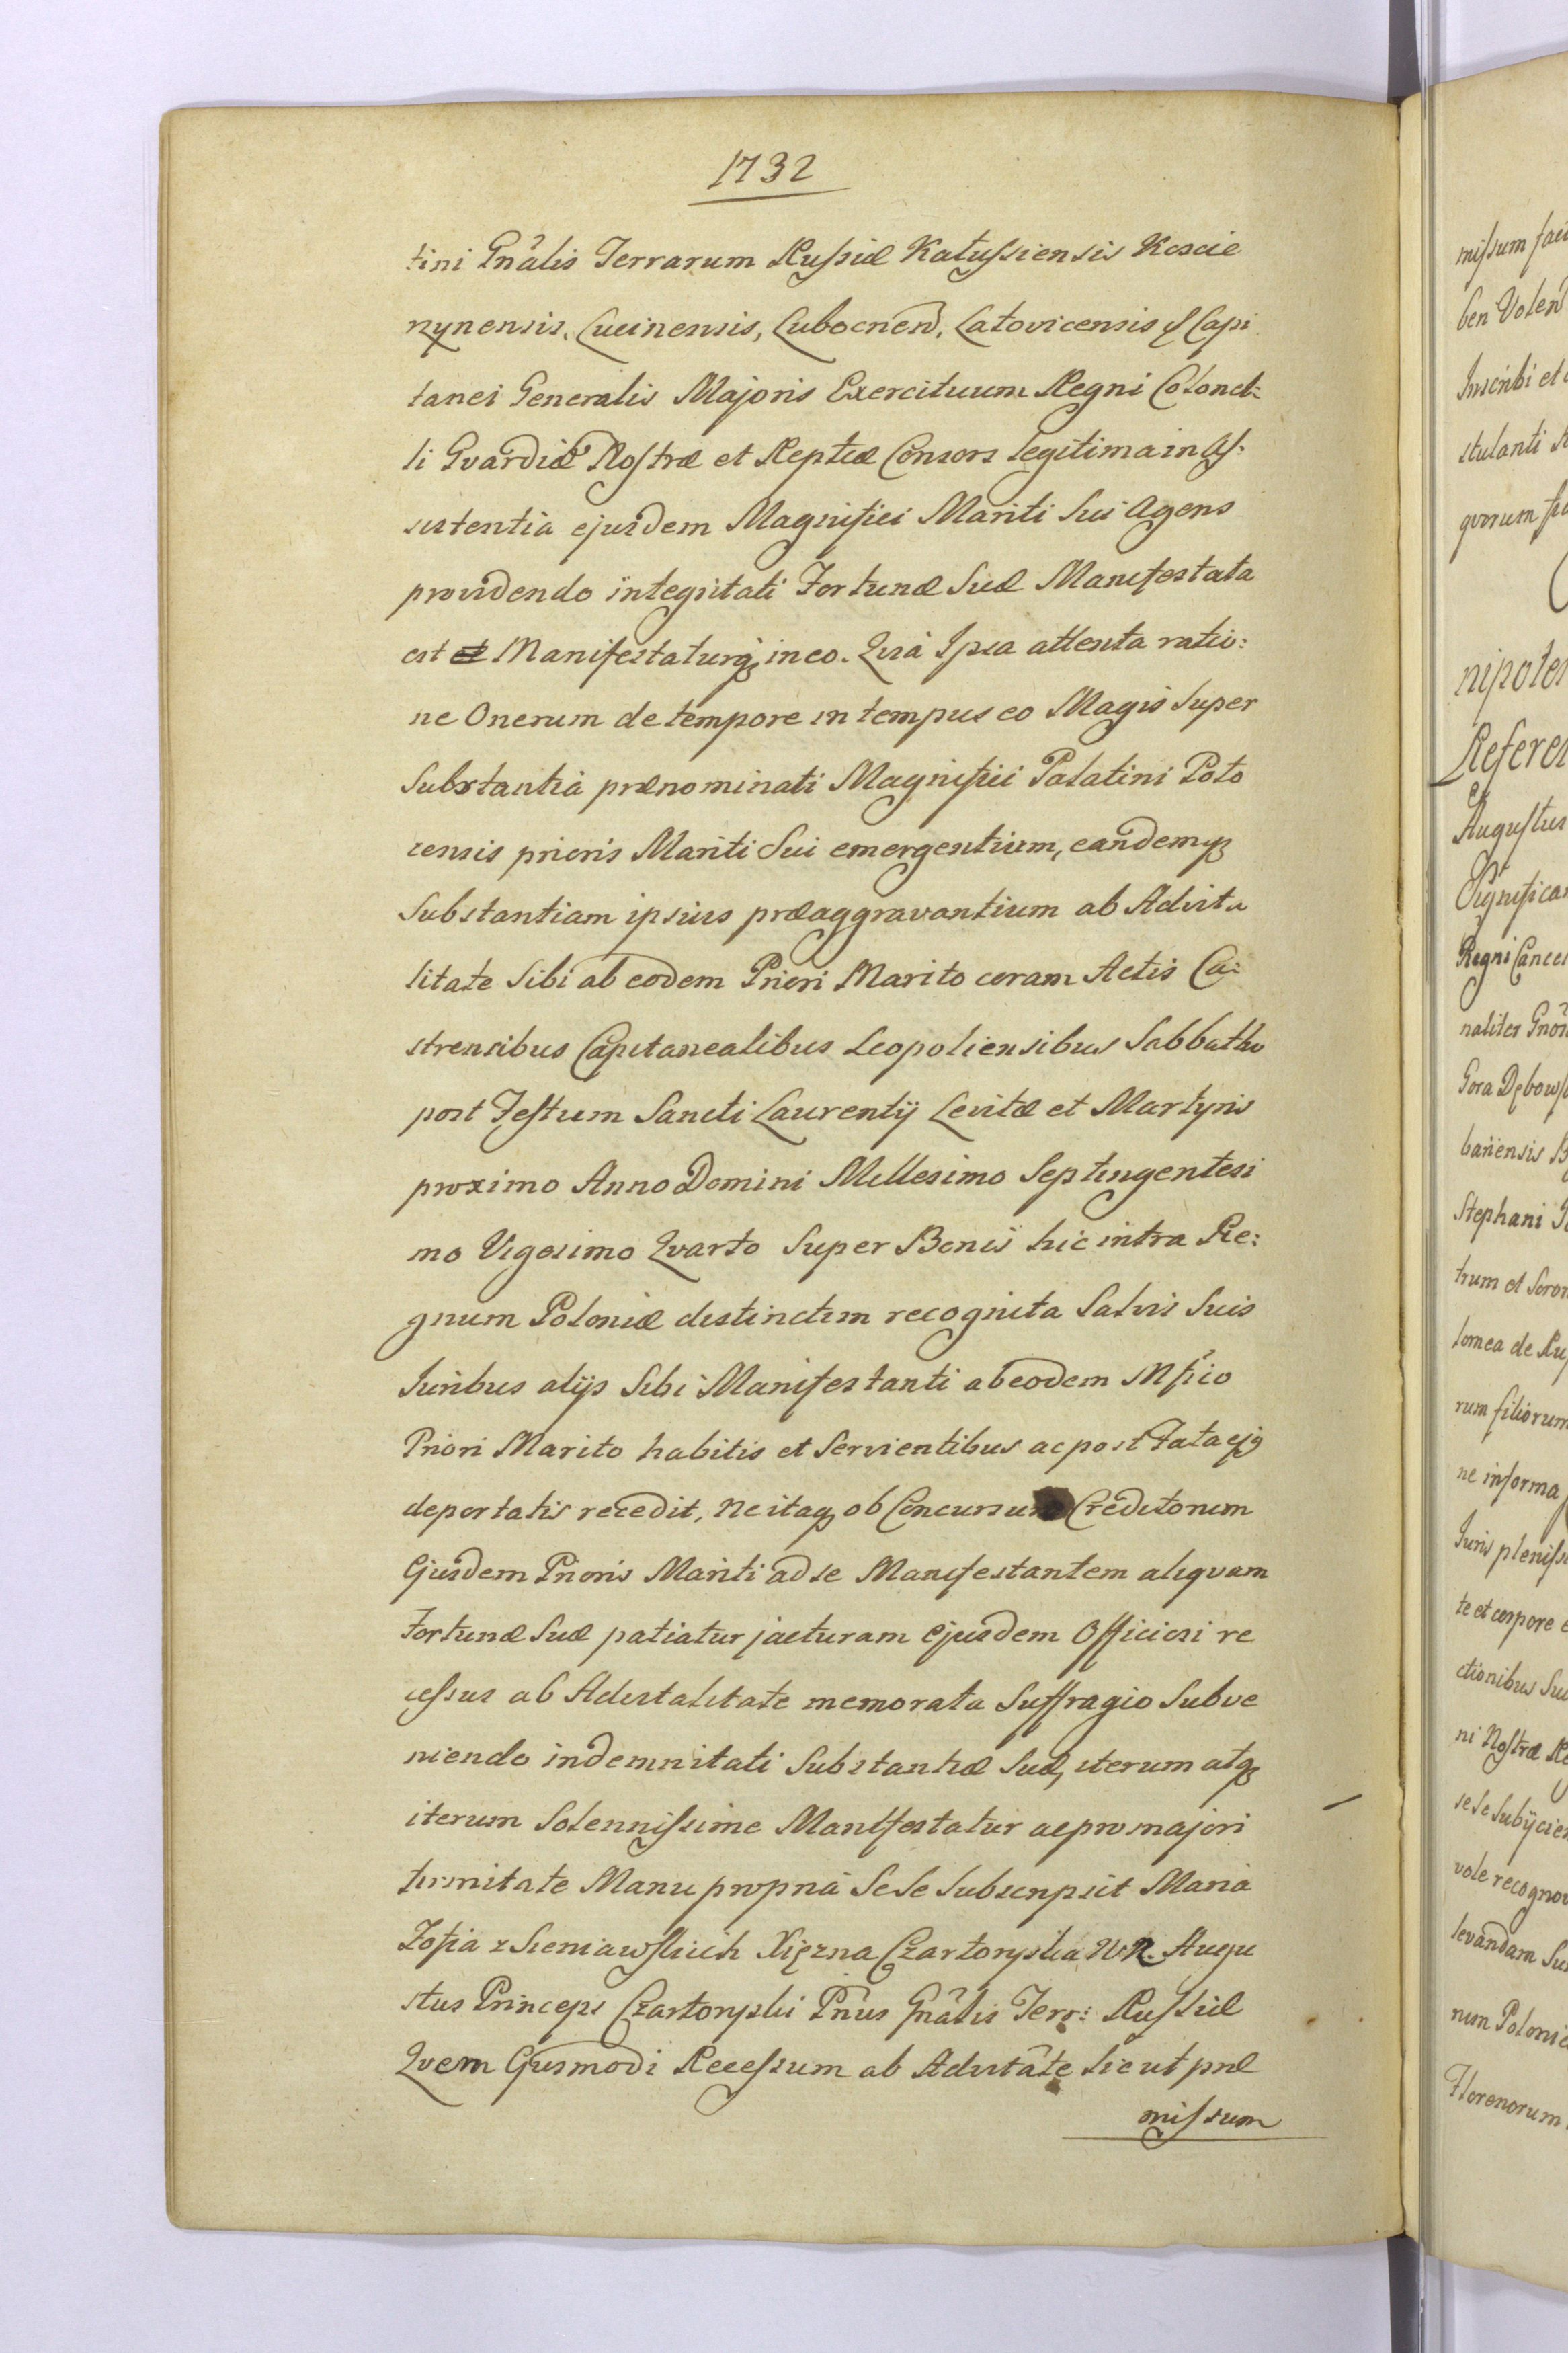 1732
tini Gnâlis Terrarum Russiæ Katussiensis Koscie
rzynensis, Lucinensis, Lubocnen, Latovicensis & Capi
tanei Generalis Majoris Exercituum Regni Colonel:
li Gvardiæ Nostræ et Reptcæ Consors legitima in As:
sistentia ejusdem Magnifici Mariti Sui agens
providendo integritati Fortunæ Suæ Manifestata
est Manifestaturq; in eo. Quia Ipsa attenta ratio:
ne Onerum de tempore in tempus eo Magis Super
Substantia prænominati Magnificii Palatini Poto
censis prioris Mariti Sui emergentium, eandemq;
Substantiam ipsius præaggravantium ab Advita
litate Sibi ab eodem Priori Marito coram Actis Ca:
strensibus Capitanealibus Leopoliensibus Sabbatho
post Festum Sancti Laurentij Levitæ et Martyris
proximo Anno Domini Millesimo Septingentesi
mo Vigesimo Qvarto Super Bonis hic intra Re:
gnum Poloniæ distinctim recognita Salvis Suis
Iuribus alijs Sibi Manifestanti ab eodem Mfico
Priori Marito habitis et Servientibus ac post Fata ejq
deportatis recedit, ne itaq; ob Concursum Creditorum
Ejusdem Prioris Mariti ad se Manifestantem aliqvam
Fortunæ Suæ patiatur jacturam ejusdem Officiosi re
cessus ab Advitalitate memorata Suffragio Subve
niendo indemnitati Substantiæ Suæ, iterum atq;
iterum Solennissime Manifestatur ac pro majori
firmitate Manu propria Sese Subscripsit Maria
Zofia z Sieniawskich Xiężna Czartoryska W. R. Augu
stus Princeps Czartoryski Pnus Gnâlis Terr: Russiæ
Qvem Ejusmodi Recessum ab Advitâte sic ut præ
missum
missum
ben Volen
Inscribi et
stulanti
qvorum
nipoten
Referen
Augustus
Significa
Regni Cancel
naliter Gno
Gora Dębows
bariensis
Stephani
trum et Soror
lomea de
rum filiorum
ne informa
Iuris pleniss
te et corpore
ctionibus Su
ni Nostræ
sese Subijcien
vole recogno
levandam Su
num Poloni
Florenorum